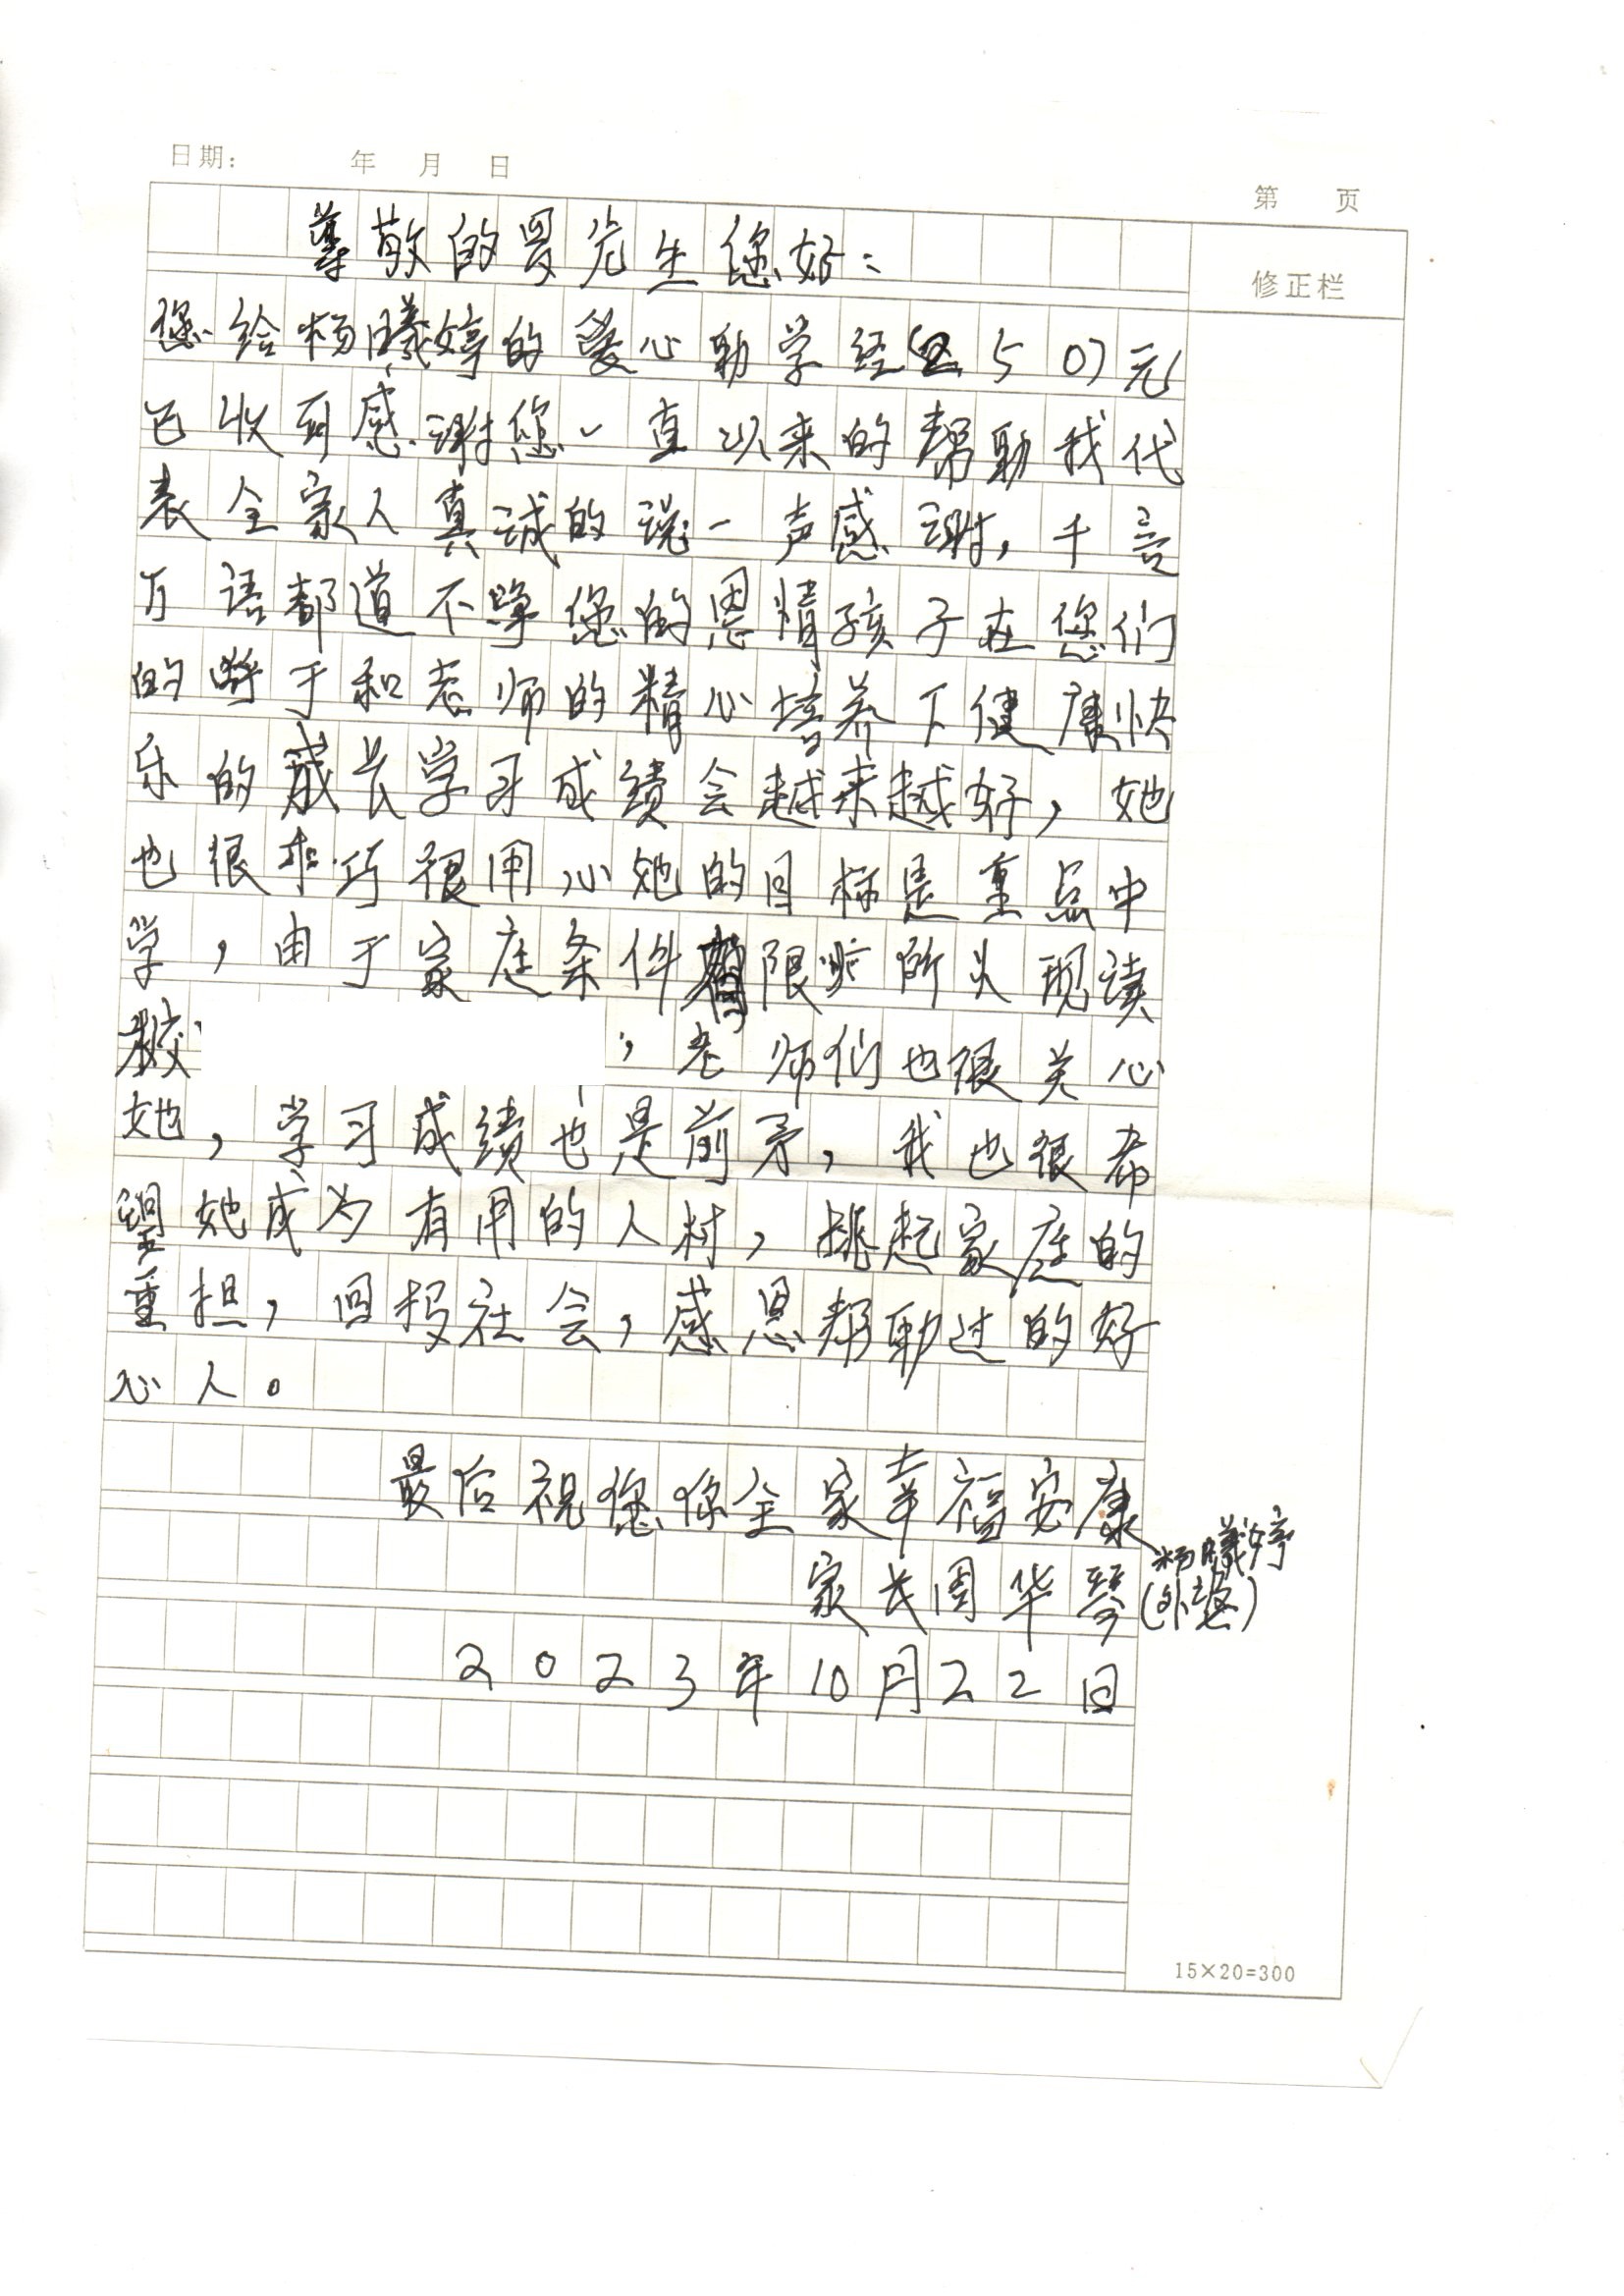 日期： 年 月 日
第 页
修正栏
尊敬的 先生您好：
您给杨曦婷的爱心助学经 507元
已收到感谢您一直以来的帮助我代
表全家人真诚的说一声感谢，千言
万语都道不 您的恩情孩子在您们
的 于和老师的精心培养下健康快
乐的成长学习成绩会越来越好，她
也很乖巧很用心她的目标是重点中
学，由于家庭条件有限 所以现读
校 ，老师们也很关心
她，学习成绩也是前矛，我也很希
望她成为有用的人材，挑起家庭的
重担，回报社会，感恩帮助过的好
心人。
最后祝您你全家幸福安康
家长周华琴 杨曦婷（外婆）
2023年10月22日
15×20=300